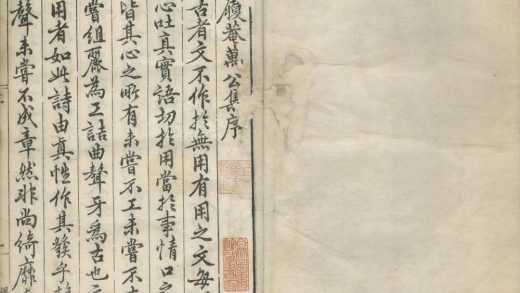 履菴萬公集序
古者文不作於無用有用之文每
心吐真實語切於用當於事情口之
皆其心之所有未嘗不工未嘗不古
嘗組麗為工詰曲聲牙為古也
用者如此詩由真性作其發乎
聲未嘗不成章然非尚綺靡